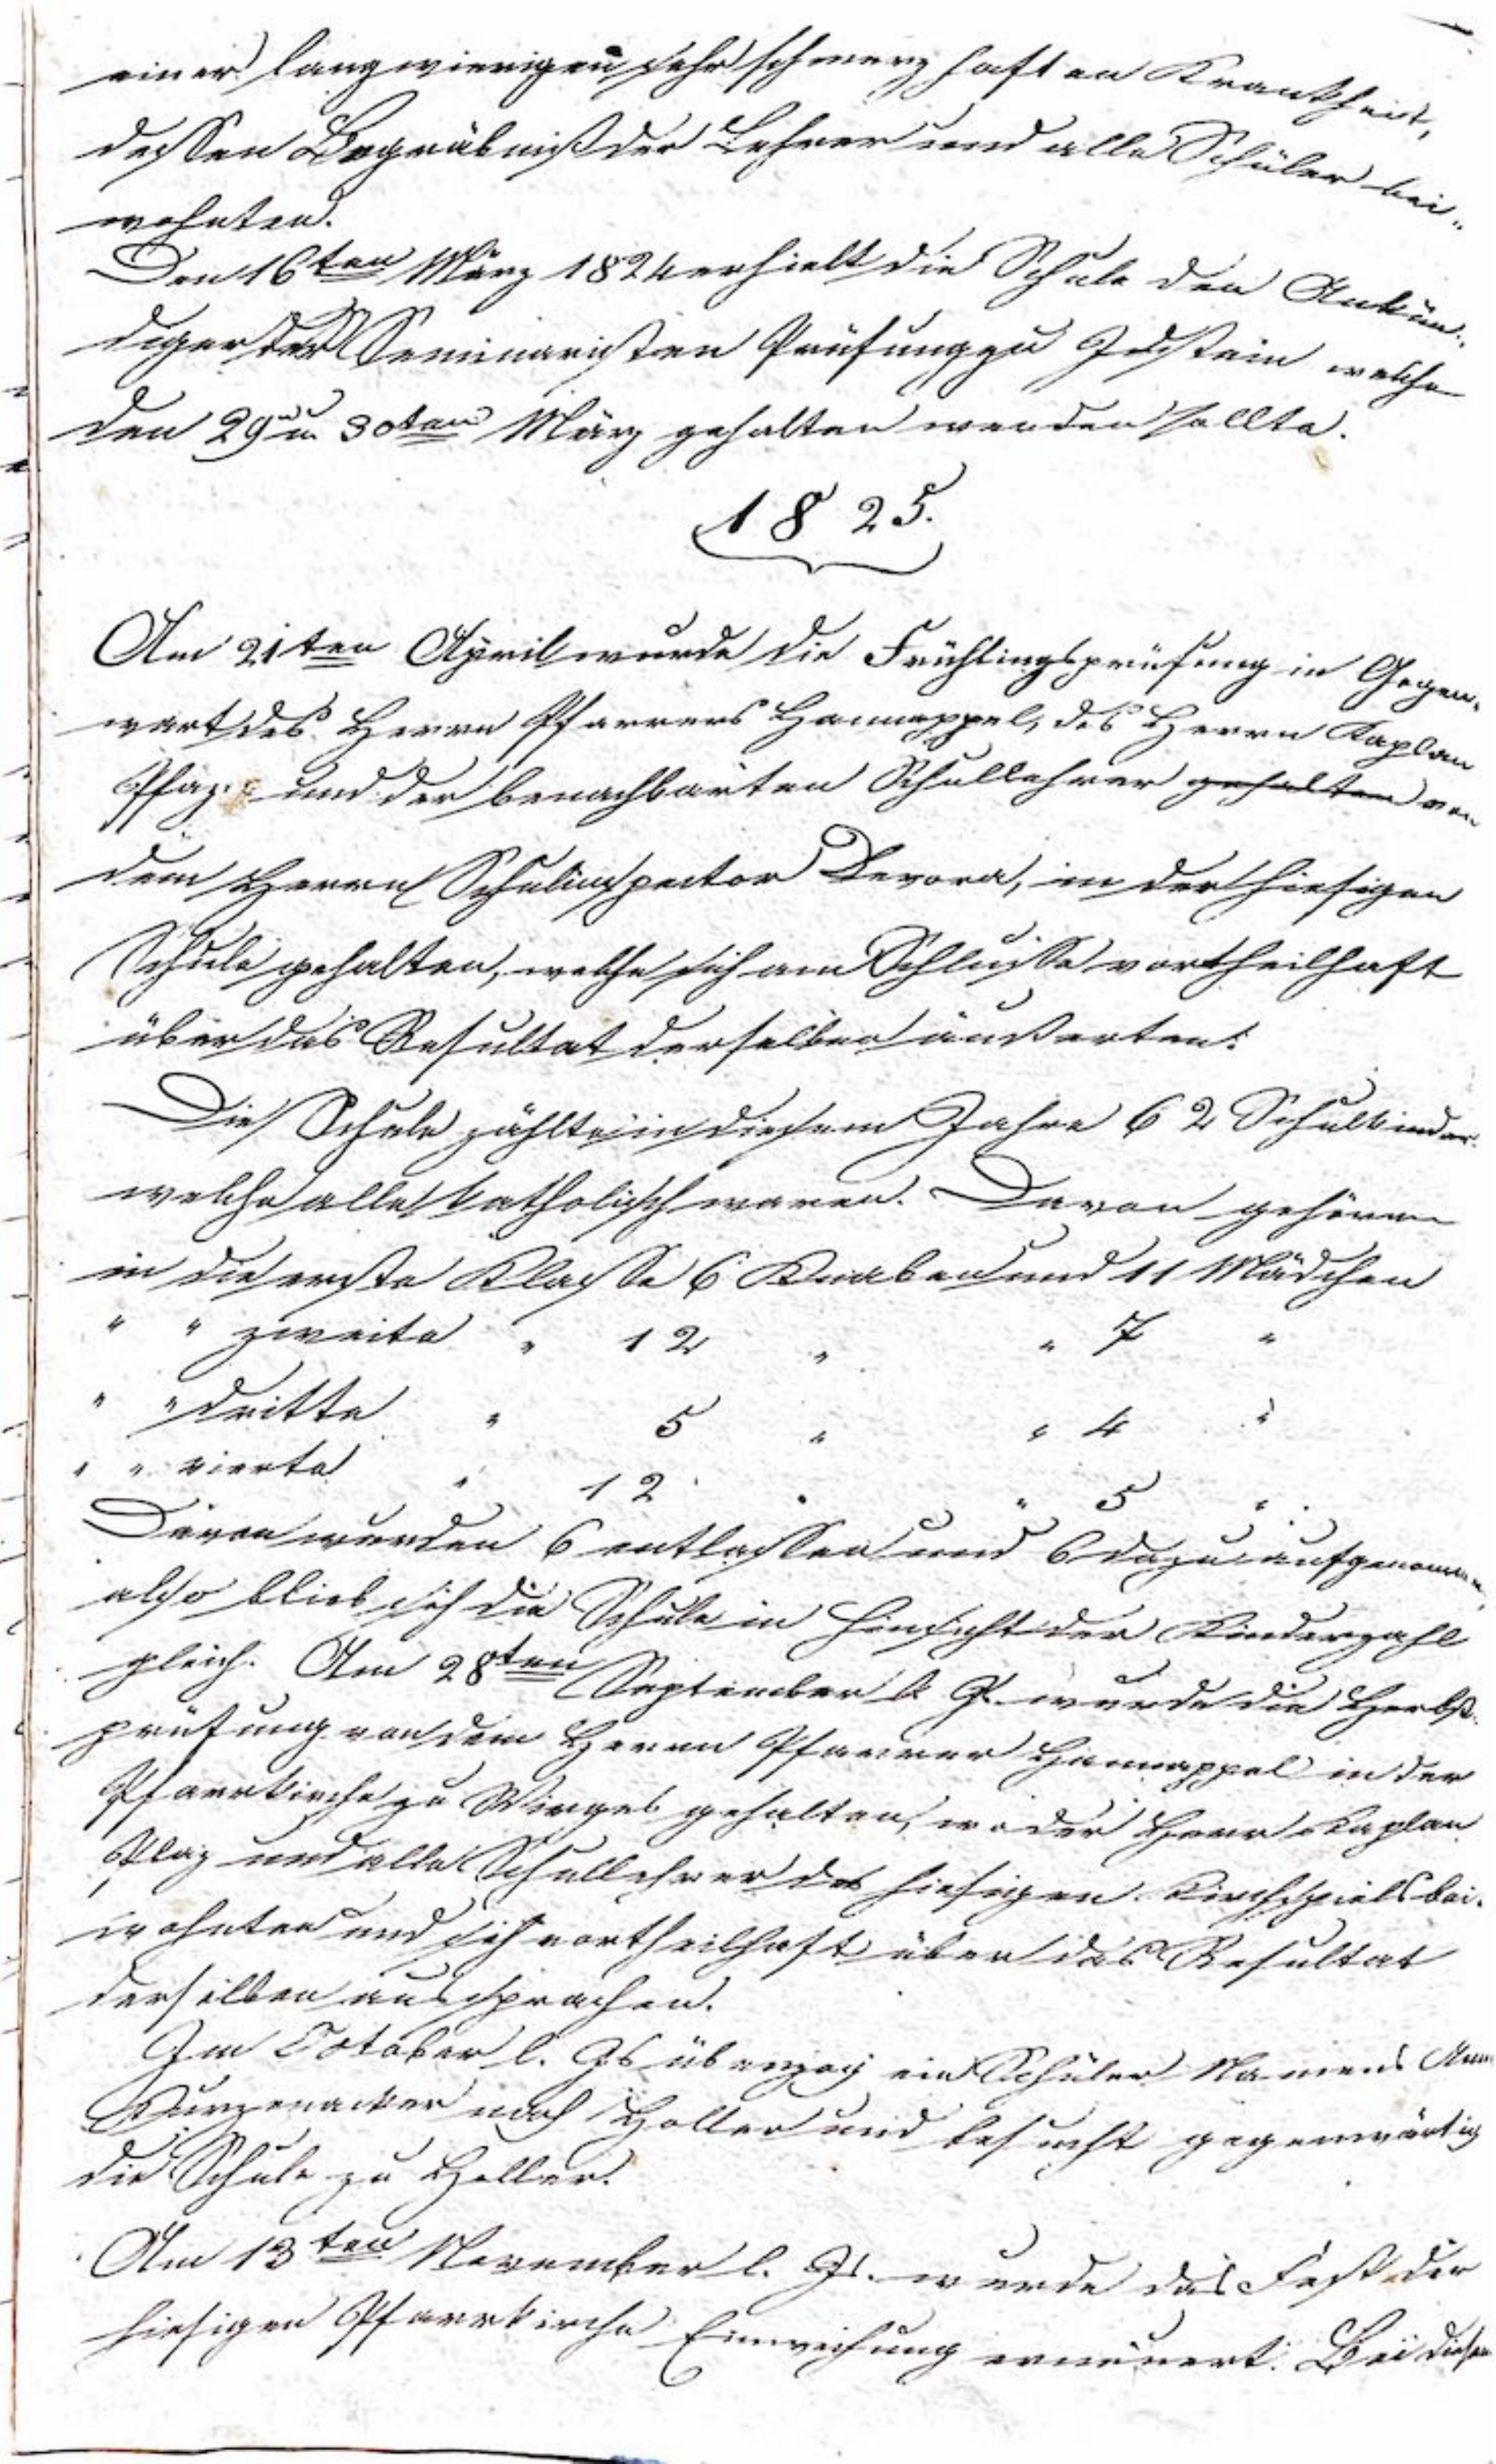 einer langwierigen sehr schmerzhaften Krankheit,
dessen Begräbniß der Lehrer und alle Schüler bei„
wohnten.
Den 16ten März 1824 erhielt die Schule den Ankün„
diger der Seminaristen Prüfung zu Idstein welche
den 29 u 30ten März gehalten werden sollte.
1825.
Am 21ten April wurde die Frühlingsprüfung in Gegen„
wart des Herrn Pfarrers Hannappel, des Herrn Kaplan
und der benachbarten Schullehrer gehalten von
dem Herrn Schulinspector Devora, in der hiesigen
Schule gehalten, welche sich am Schlusse vortheilhaft
über das Resultat derselben äußerten.
Die Schule zählte in diesem Jahre 62 Schulkinder
welche alle katholisch waren. Davon gehören
in die erste Klasse 6 Knaben und 11 Mädchen
" " zweite " 12 " " 7 "
" " dritte " 5 " " 4 "
" " vierte " 12 " " 5 "
Davon wurden 6 entlassen und 6 dazu aufgenommen,
also blieb sich die Schule in Hinsicht der Kinderzahl
gleich. Am 28ten September l. J. wurde die Herbst„
prüfung von dem Herrn Pfarrer Hannappel in der
Pfarrkirche zu Wirges gehalten, wo der Herr Kaplan
Plaz und alle Schullehrer des hiesigen Kirchspiels bei„
wohnten und sich vortheilhaft über das Resultat
derselben aussprachen.
Im October l. Js überzog ein Schüler Namens
Kurzenacker nach Holler und besucht gegenwärtig
die Schule zu Holler.
Am 13ten November l. Js. wurde das Fest der
hiesigen Pfarrkirche Einweihung erneuert. Bei diesem